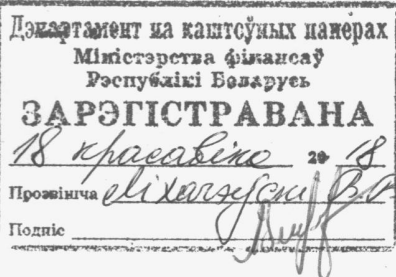 Дэпартамент па каштоўных паперах
Міністэрства фінансаў
Рэспублікі Беларусь
ЗАРЭГІСТРАВАНА
18 красавіка 20 18
Прозвішча
Подпіс